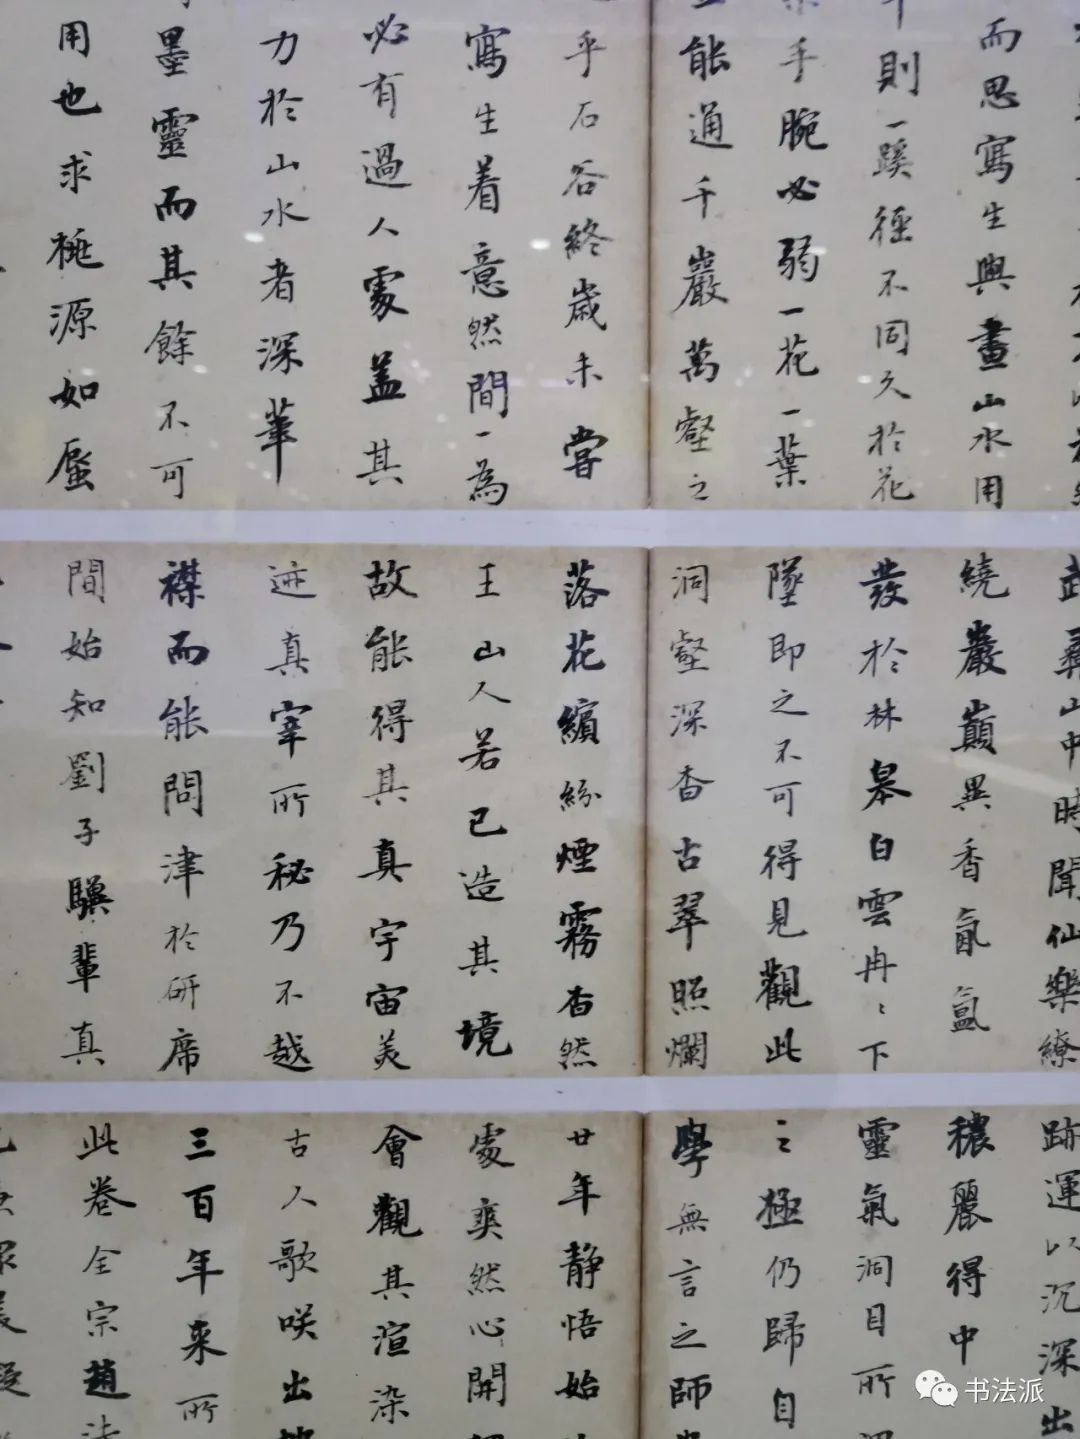 而思寫生與畫山水用
則一蹊徑不同久於花
手腕必弱一花一葉
能通千巖萬壑之
乎石谷終歲未嘗
寫生着意然間一為
必有過人處蓋其
力於山水者深筆
墨靈而其餘不可
用也求桃源如蜃
武彞山中時聞仙樂繚
繞巖巔異香氤氳
發於林皋白雲冉〻下
墜即之不可得見觀此
洞壑深杳古翠照爛
落花繽紛煙霧杳然
王山人若已造其境
故能得其真宇宙美
迹真宰所秘乃不越
襟而能問津於研席
間始知劉子驥輩真
跡運以沉深出
穠麗得中
靈氣洞目所
〻極仍歸自
學無言之師
廿年静悟始
處爽然心開
會觀其渲染
古人歌咲出
三百年来所
此卷全宗趙法
书法派